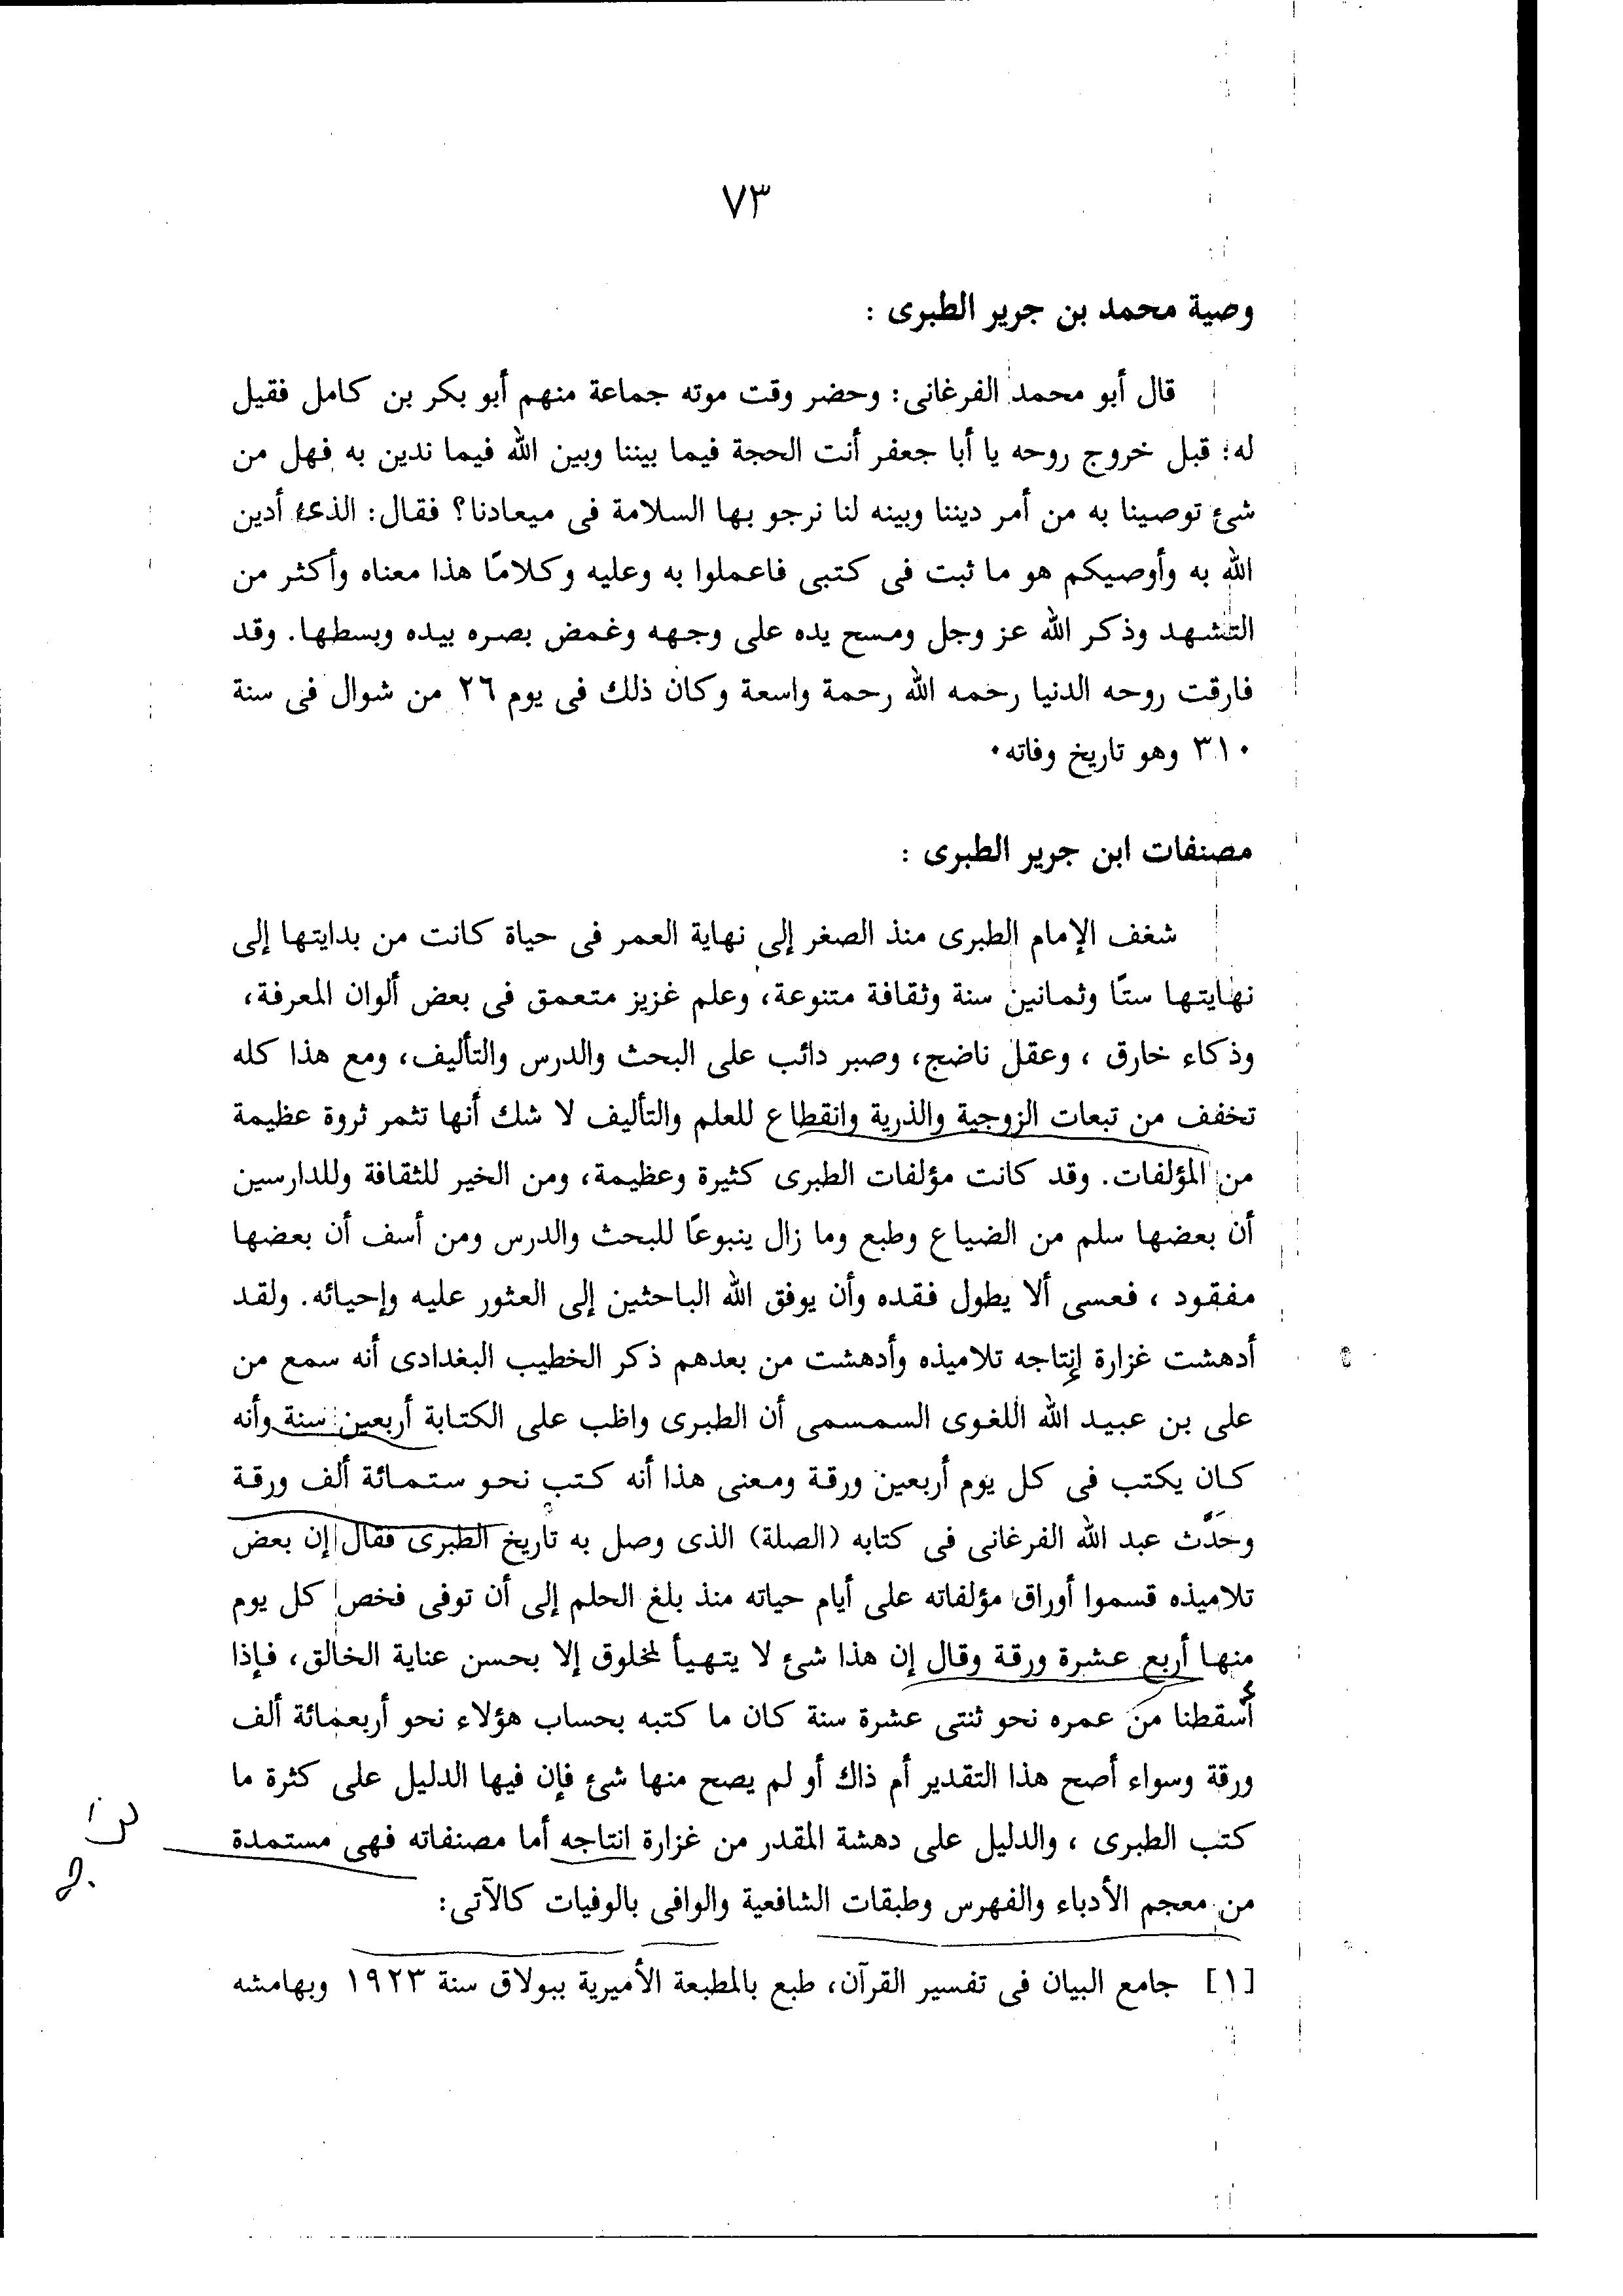 ٧٣
وصية محمد بن جرير الطبرى :
قال أبو محمد الفرغانى: وحضر وقت موته جماعة منهم أبو بكر بن كامل فقيل
له: قبل خروج روحه يا أبا جعفر أنت الحجة فيما بيننا وبين الله فيما ندين به فهل من
شئ توصينا به من أمر ديننا وبينه لنا نرجو بها السلامة فى ميعادنا؟ فقال: الذى أدين
الله به وأوصيكم هو ما ثبت فى كتبى فاعملوا به وعليه وكلامًا هذا معناه وأكثر من
التشهد وذكر الله عز وجل ومسح يده على وجهه وغمض بصره بيده وبسطها. وقد
فارقت روحه الدنيا رحمه الله رحمة واسعة وكان ذلك فى يوم ٢٦ من شوال فى سنة
٣١٠ وهو تاريخ وفاته.
مصنفات ابن جرير الطبرى :
شغف الإمام الطبرى منذ الصغر إلى نهاية العمر فى حياة كانت من بدايتها إلى
نهايتها ستًا وثمانين سنة وثقافة متنوعة، وعلم غزيز متعمق فى بعض ألوان المعرفة،
وذكاء خارق ، وعقل ناضج، وصبر دائب على البحث والدرس والتأليف، ومع هذا كله
تخفف من تبعات الزوجية والذرية وانقطاع للعلم والتأليف لا شك أنها تثمر ثروة عظيمة
من المؤلفات. وقد كانت مؤلفات الطبرى كثيرة وعظيمة، ومن الخير للثقافة وللدارسين
أن بعضها سلم من الضياع وطبع وما زال ينبوعًا للبحث والدرس ومن أسف أن بعضها
مفقود ، فعسى ألا يطول فقده وأن يوفق الله الباحثين إلى العثور عليه وإحيائه. ولقد
أدهشت غزارة إنتاجه تلاميذه وأدهشت من بعدهم ذكر الخطيب البغدادى أنه سمع من
على بن عبيد الله اللغوى السمسمى أن الطبرى واظب على الكتابة أربعين سنة وأنه
كان يكتب فى كل يوم أربعين ورقة ومعنى هذا أنه كتب نحو ستمائة ألف ورقة
وحَدَّث عبد الله الفرغانى فى كتابه (الصلة) الذى وصل به تاريخ الطبرى فقال إن بعض
تلاميذه قسموا أوراق مؤلفاته على أيام حياته منذ بلغ الحلم إلى أن توفى فخص كل يوم
منها أربع عشرة ورقة وقال إن هذا شئ لا يتهيأ لمخلوق إلا بحسن عناية الخالق، فإذا
أسقطنا من عمره نحو ثنتى عشرة سنة كان ما كتبه بحساب هؤلاء نحو أربعمائة ألف
ورقة وسواء أصح هذا التقدير أم ذاك أو لم يصح منها شئ فإن فيها الدليل على كثرة ما
كتب الطبرى ، والدليل على دهشة المقدر من غزارة انتاجه أما مصنفاته فهى مستمدة
من معجم الأدباء والفهرس وطبقات الشافعية والوافى بالوفيات كالآتى:
[١] جامع البيان فى تفسير القرآن، طبع بالمطبعة الأميرية ببولاق سنة ١٩٢٣ وبهامشه